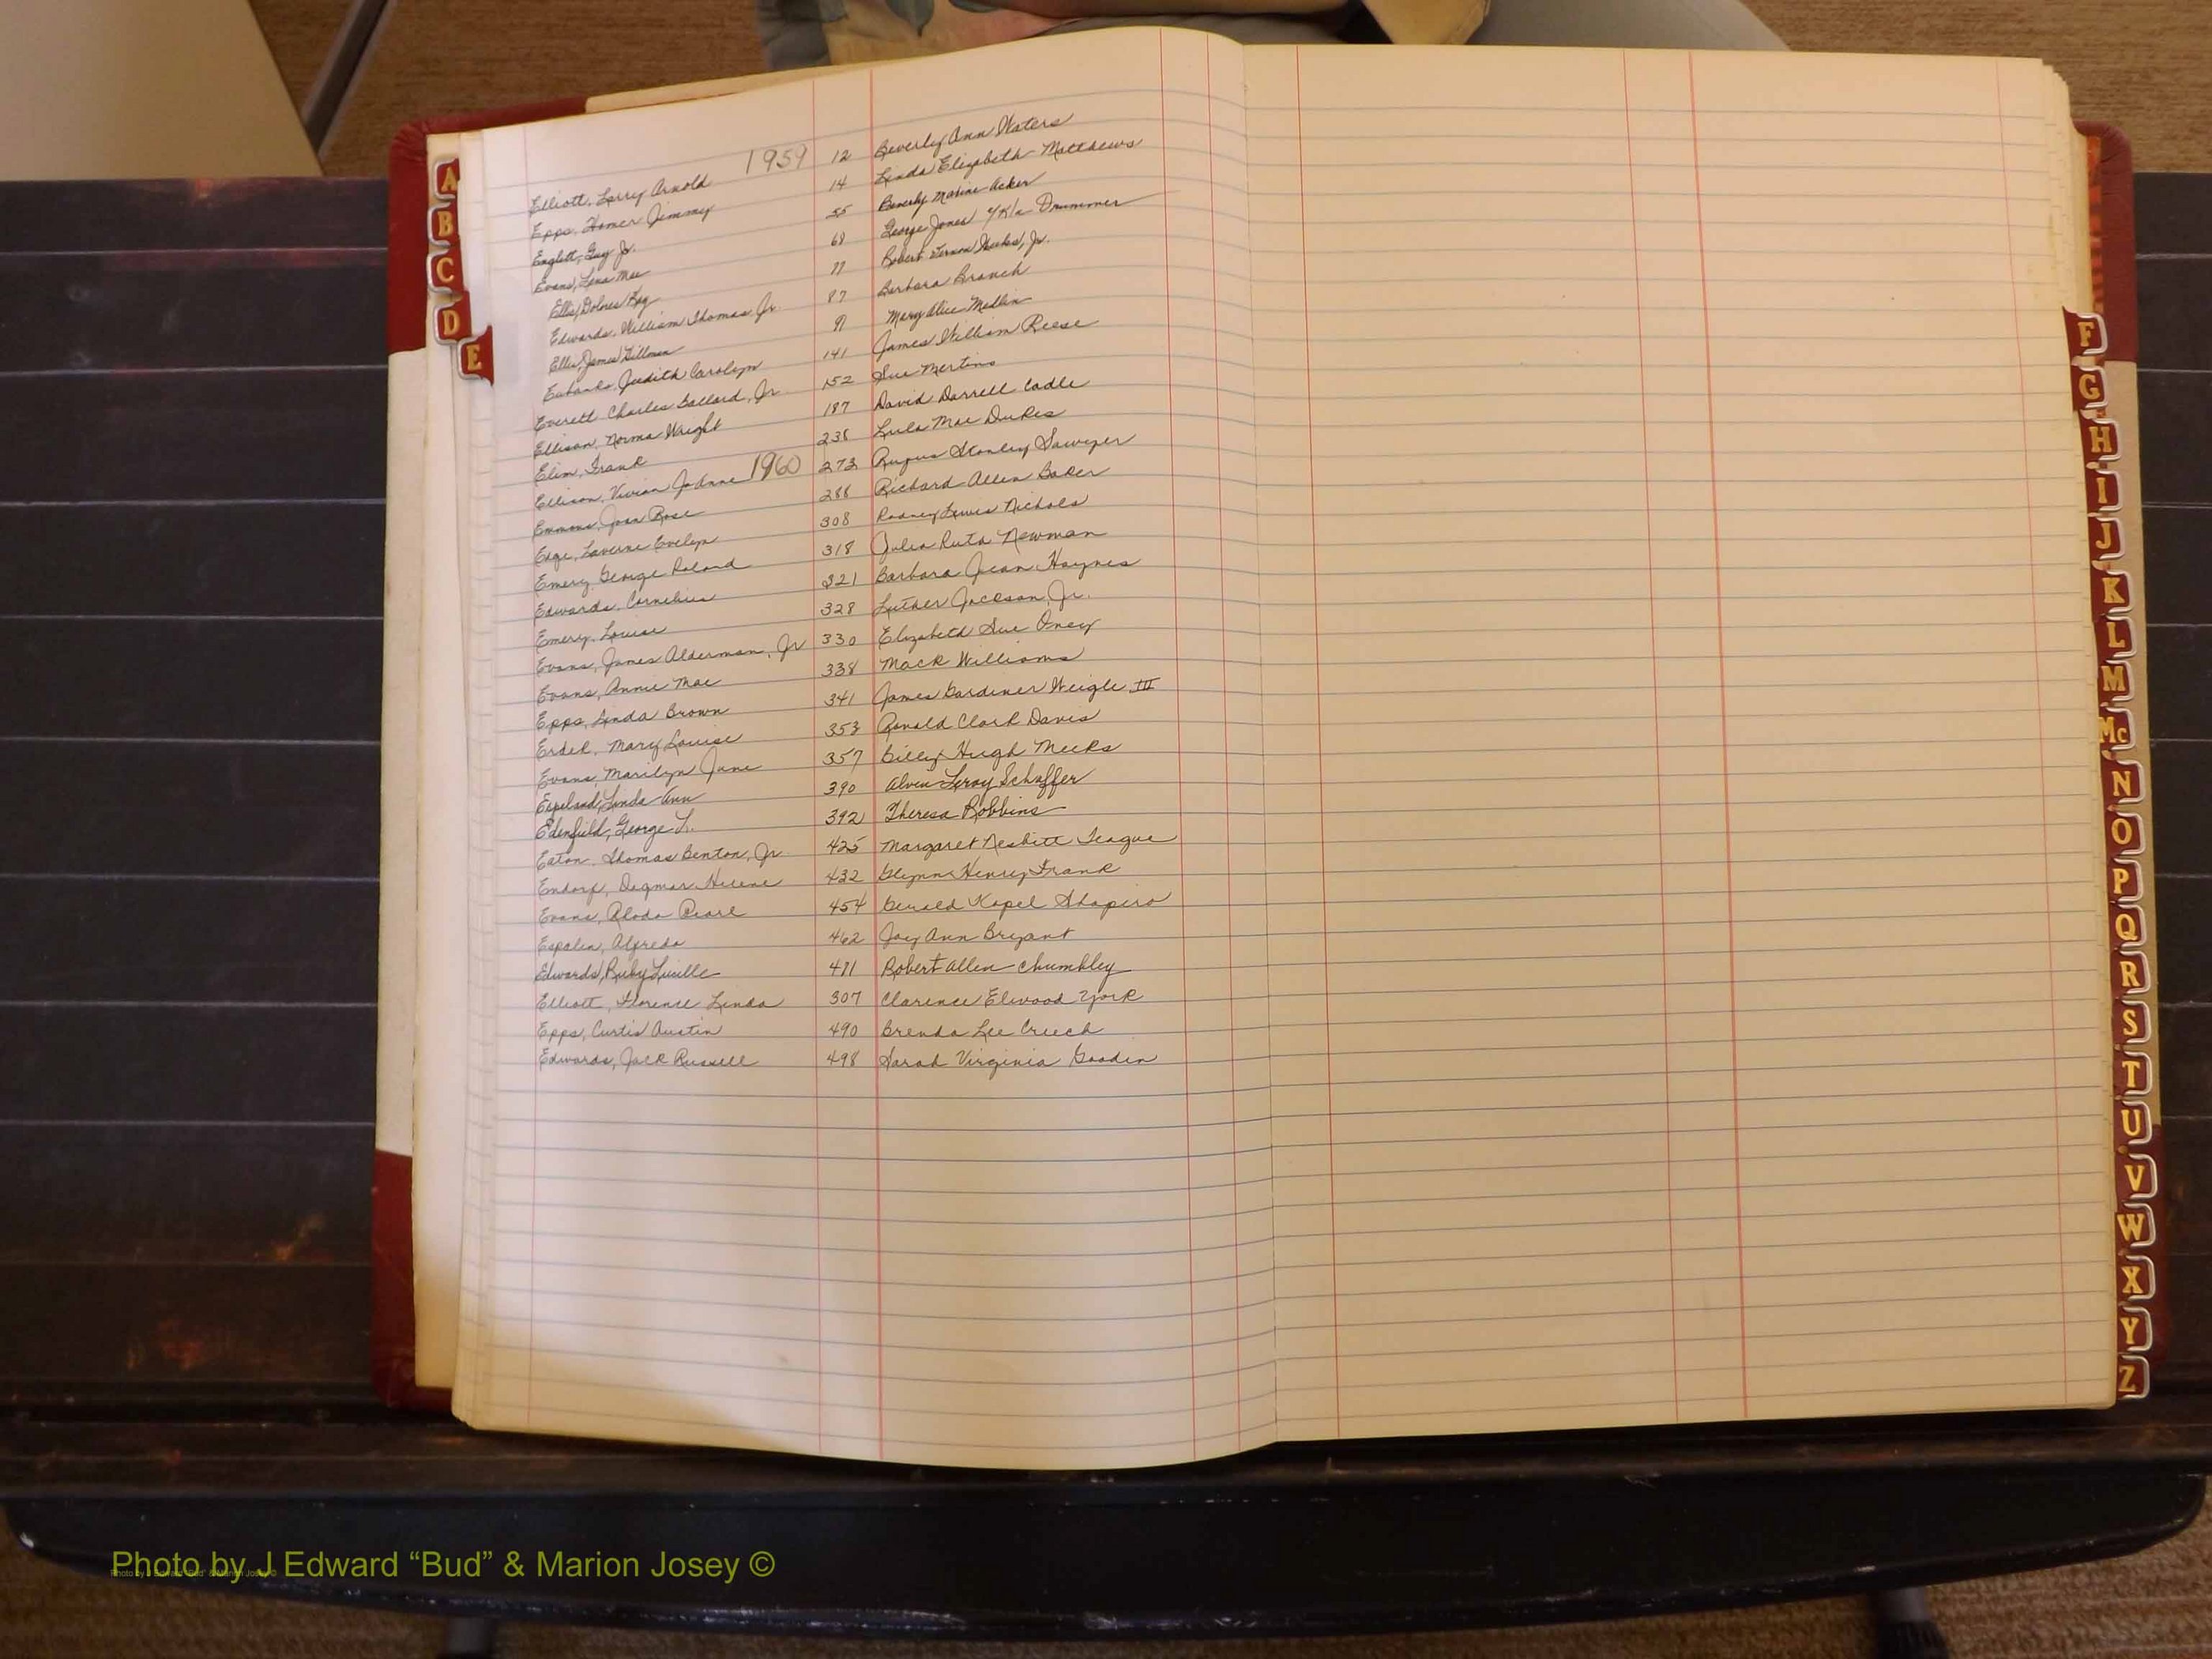 1959
Elliott, Larry Arnold 12 Beverly Ann Waters
Epps, Homer Jimmy 14 Linda Elizabeth Matthews
Englett, Guy Jr. 55 Beverly Maxine Acker
Evans, Lena Mae 68 George Jones a/k/a Drummer
Ellis, Dolores Kay 77 Robert Vernon Jr.
Edwards, William Thomas, Jr. 87 Barbara Branch
Ellis, James 91 Mary Alice Medlin
Eubanks, Judith Carolyn 141 James William Reese
Everett Charles Ballard, Jr. 152 Sue Mertins
Ellison, Norma Wright 187 David Darrell Cadle
Elim, Frank 238 Lula Mae Dukes
Ellison, Vivian JoAnne 1960 273 Rufus Stanley Sawyer
Emmons, Joan Rose 288 Richard Allen Baker
Edge, Laverne Evelyn 308 Rodney Lewis Nichols
Emery George Roland 318 Julia Ruth Newman
Edwards, Cornelius 321 Barbara Jean Haynes
Emery, Louise 328 Luther Jackson, Jr.
Evans, James Alderman, Jr 330 Elizabeth Sue Oney
Evans, Annie Mae 338 Mack Williams
Epps, Linda Brown 341 James Gardiner Weigle III
Erdek, Mary Louise 353 Ronald Clark Davis
Evans, Marilyn June 357 Billy Hugh Meeks
Espeland, Linda Ann 390 Alvin Leroy Schaffer
Edenfield, George L. 392 Theresa Robbins
Eaton, Thomas Benton, Jr. 425 Margaret Nesbitt Teague
Endorf, Dagmar Helene 432 Glynn Henry Frank
Evans, Rhoda Pearl 454 Gerald Kopel Shapiro
Espalin, Alfredo 462 Joy Ann Bryant
Edwards, Ruby Lucille 471 Robert Allen Chumbley
Elliott, Florence Linda 307 Clarence Elwood York
Epps, Curtis Austin 490 Brenda Lee Creech
Edwards, Jack Russell 498 Sarah Virginia Goodin
A
B
C
D
E
F
G
H
I
J
K
L
M
Mc
N
O
P
Q
R
S
T
U
V
W
X
Y
Z
Photo by J Edward “Bud” & Marion Josey ©
Photo by J Edward "Bud" & Marion Josey ©